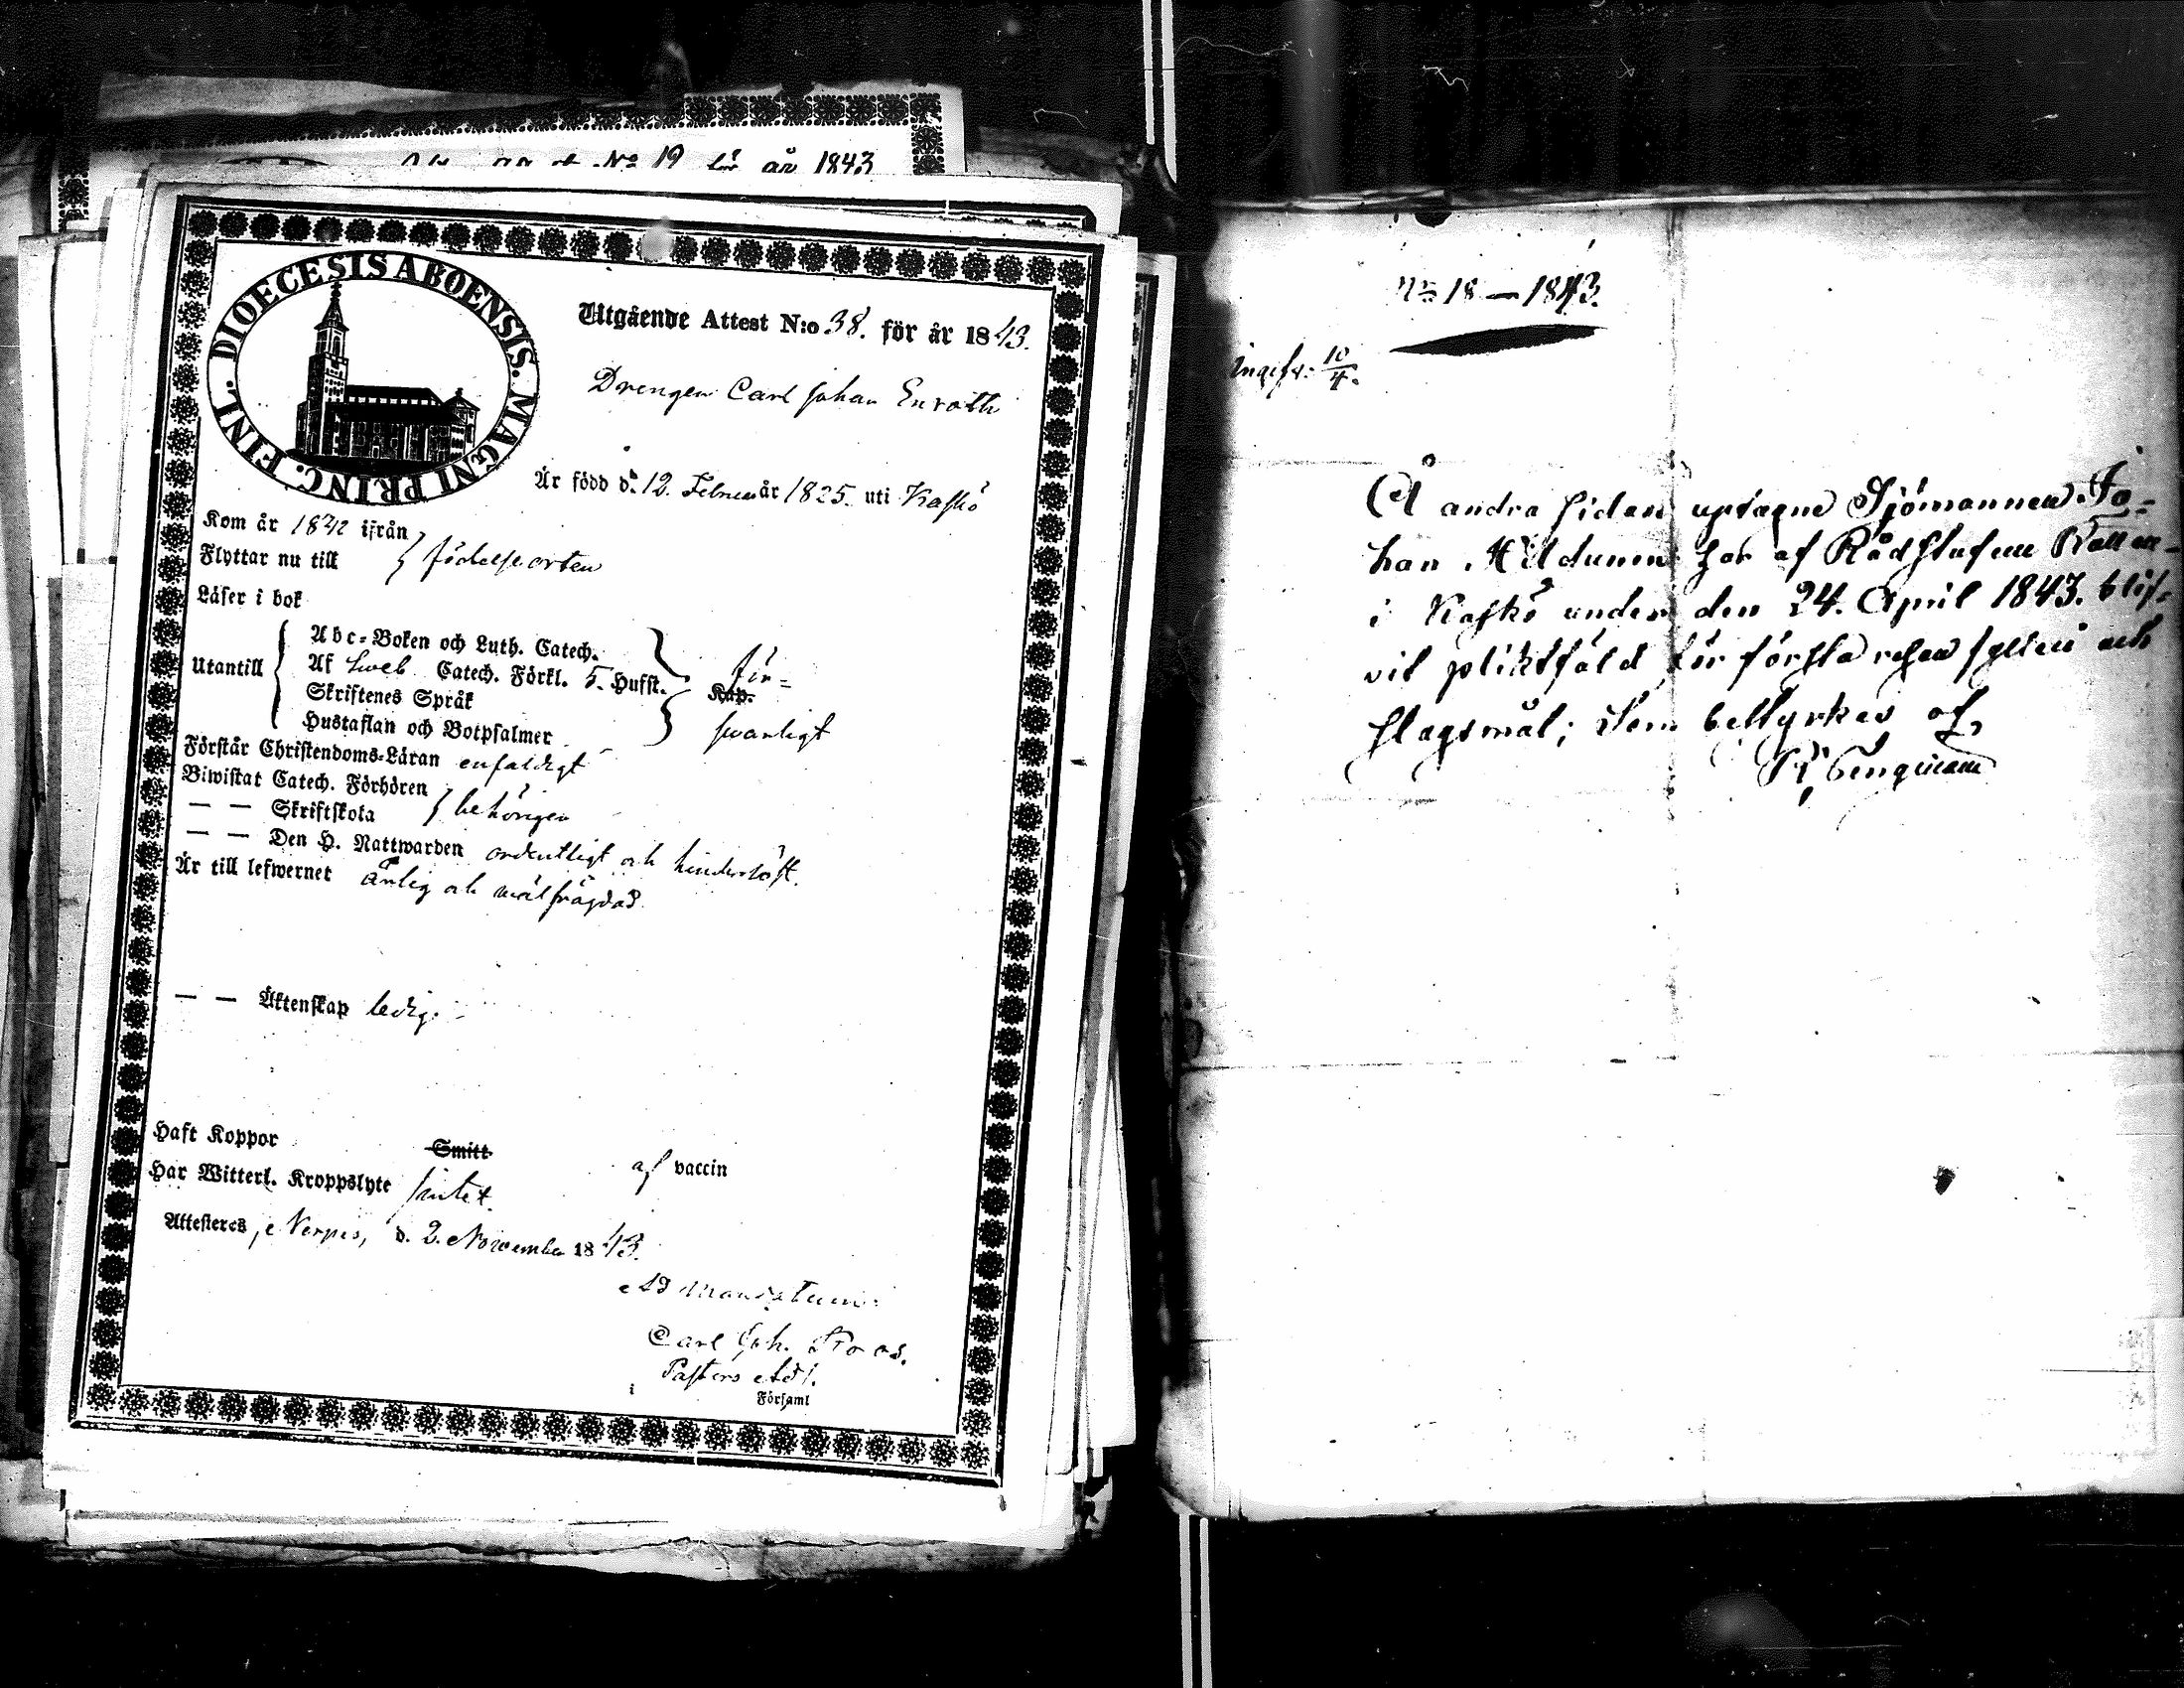 No 19 för år 1843
DIOECESIS ABOENSIS. MAGNI PRINC. FINL.
Utgående Attest N:o 38. för år 1843.
Drengen Carl Johan Enroth
Är född d. 12. Februari år 1825. uti Kaskö
Kom år 1842 ifrån
Flyttar nu till } födelseorten
Läser i bok
Utantill
Abc-Boken och Luth. Catech.
Af Sweb. Catech. Förkl. 5. Hufst. Kap.
Skriftenes Språk
Hustaflan och Botpsalmer
för=
svarligt
Förstår Christendoms-Läran enfaldigt
Biwistat Catech. Förhören
— — Skriftskola } behörigen
— — Den H. Nattwarden ordentligt och hinderslöst.
Är till lefwernet ärlig och wälfrägdad
— — Äktenskap ledig.
Haft Koppor Smitt af vaccin
Har Witterl. Kroppslyte intet.
Attesteras, Nerpes, d. 2. November 1843.
Ad mandatum:
Carl Joh. Roos.
Pastors Adj.
i Församl
No 18 — 1843.
10/4.
Å andra sidan uptagne Sjömannen Jo-
han har af Rådstufvu Rätten
i Kaskö under den 24. April 1843. blif-
vit pliktfäld för första resan fylleri och
slagsmål; Som bestyrkes af,